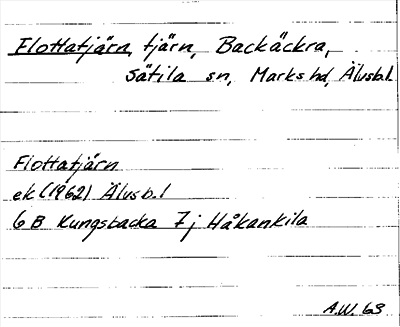 Flottatjärn, tjärn, Backäckra,
Sätila sn, Marks hd, Älvsb.l
Flottatjärn
ek (1962) Älvsb.l
6 B Kungsbacka 7j Håkankila
A.W. 63